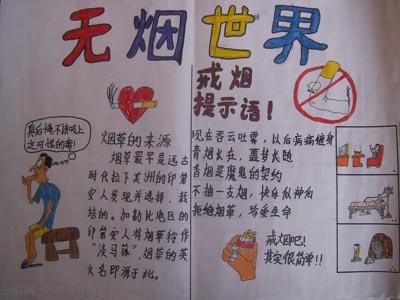 无烟世界
戒烟
提示语！
真后悔不该吸上
这可恨的毒！
烟草的来源
烟草最早是远古
时代拉丁美洲的印第
安人发现并选择、栽
培的。加勒比地区的
印第安人将烟草称作
“淡马菰”，烟草的英
文名即源于此。
现在吞云吐雾，以后病病缠身
青烟长在，噩梦长随
青烟是魔鬼的契约
不抽一支烟，快乐似神仙
拒绝烟草，珍爱生命
戒烟吧！
其实很简单！！